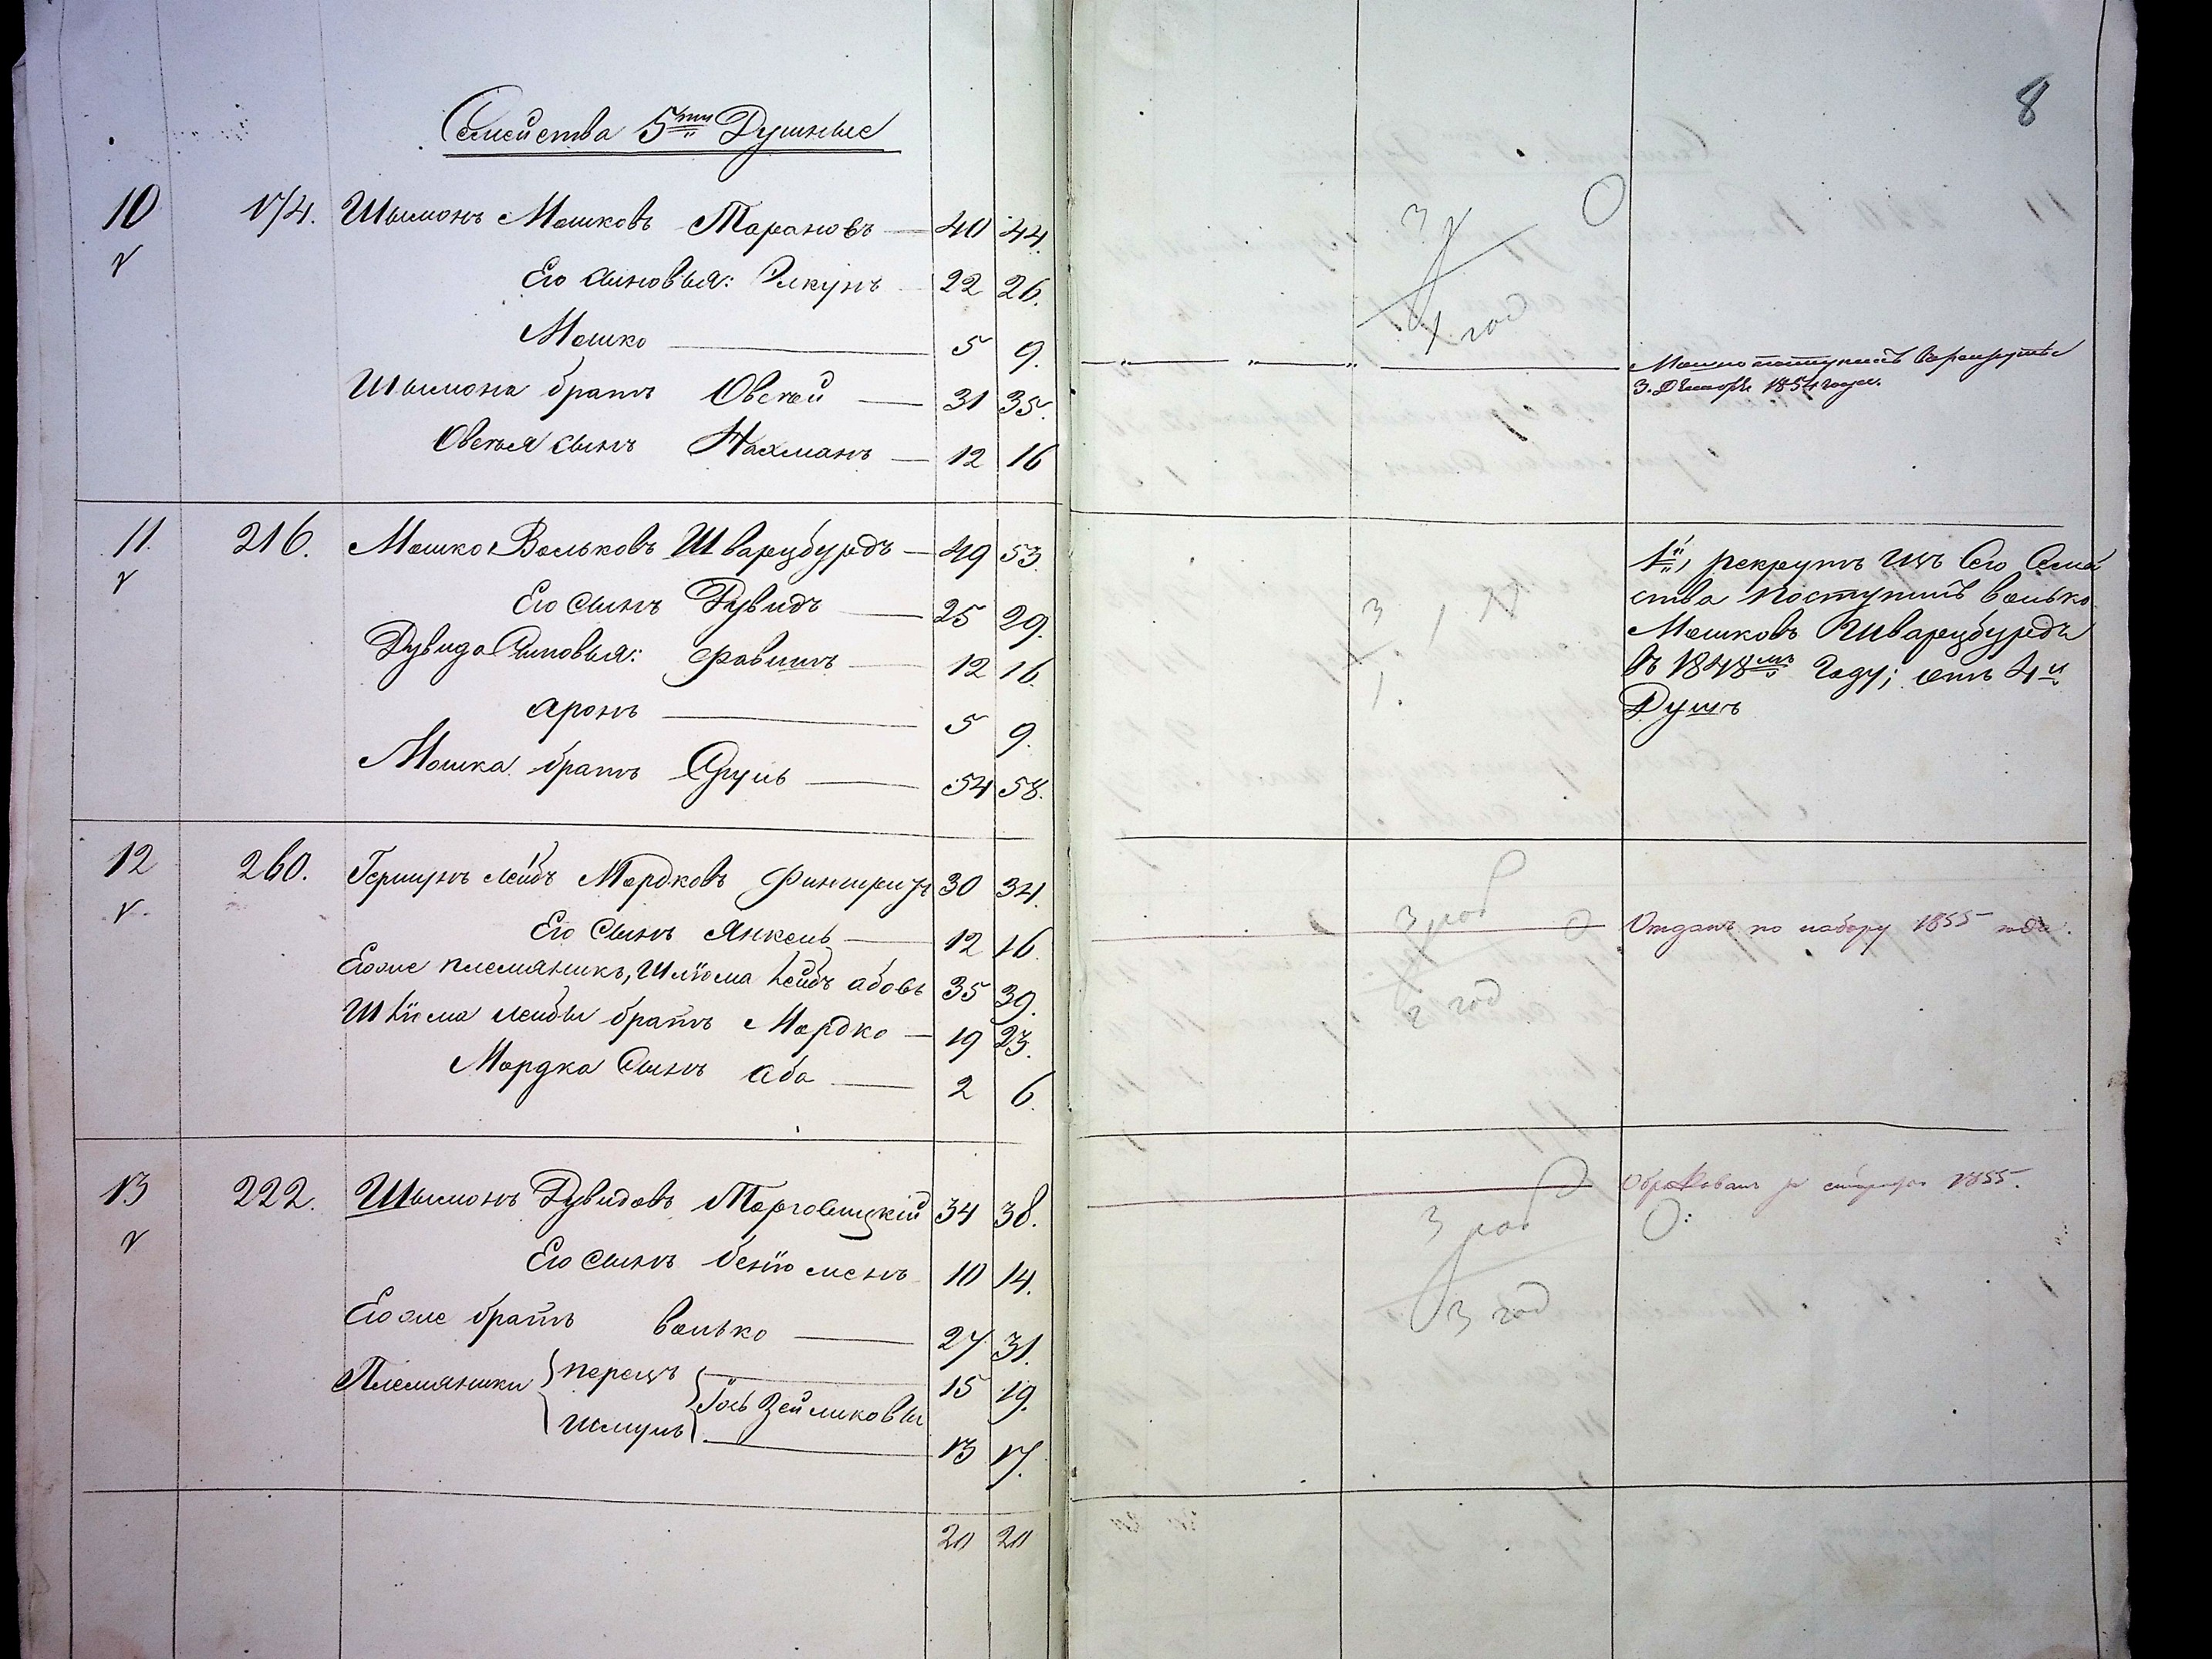 8
Семейства 5ти Душные
10 174. Шымонъ Мошковъ Тарановъ — 40 44.
Его сыновья: Элкунъ 22 26.
Мошко — 5 9.
Мошко поступилъ
3. 1854 года.
Шымона братъ Овсей — 31 35.
Овсея сынъ Нахманъ — 12 16
3
1 год
11. 216. Мошко Вольковъ Шварцбурдъ — 49 53.
Его сынъ Дувидъ — 25 29.
Дувида сыновья: Фавишъ — 12 16.
Аронъ — 5 9.
Мошка братъ Сруль — 54 58.
3
1.
1й, рекрутъ изъ Его Семей
ства поступилъ Волько
Мошковъ Шварцбурдъ
въ 1848мъ Году; отъ 4и
Душъ
12 260. Гершунъ Лейбъ Мордковъ 30 34.
Его сынъ Янкель — 12 16.
Его же племянникъ, Шлiома Лейбъ Абовъ 35 39.
Шлiома Лейбы братъ Мордко — 19 23.
Мордка сынъ Аба — 2 6.
3 роб
2 год
Отданъ по набору 1855 года.
13 222. Шымонъ Дувидовъ Торговицкiй 34 38.
Его сынъ Бенiоменъ 10 14.
Его же братъ Волько — 27 31.
Племянники Перецъ — 15 19.
Iось Зейликовы
Шмуль — 13 17.
3 роб
3 год
Обракованъ 1855.
20 20